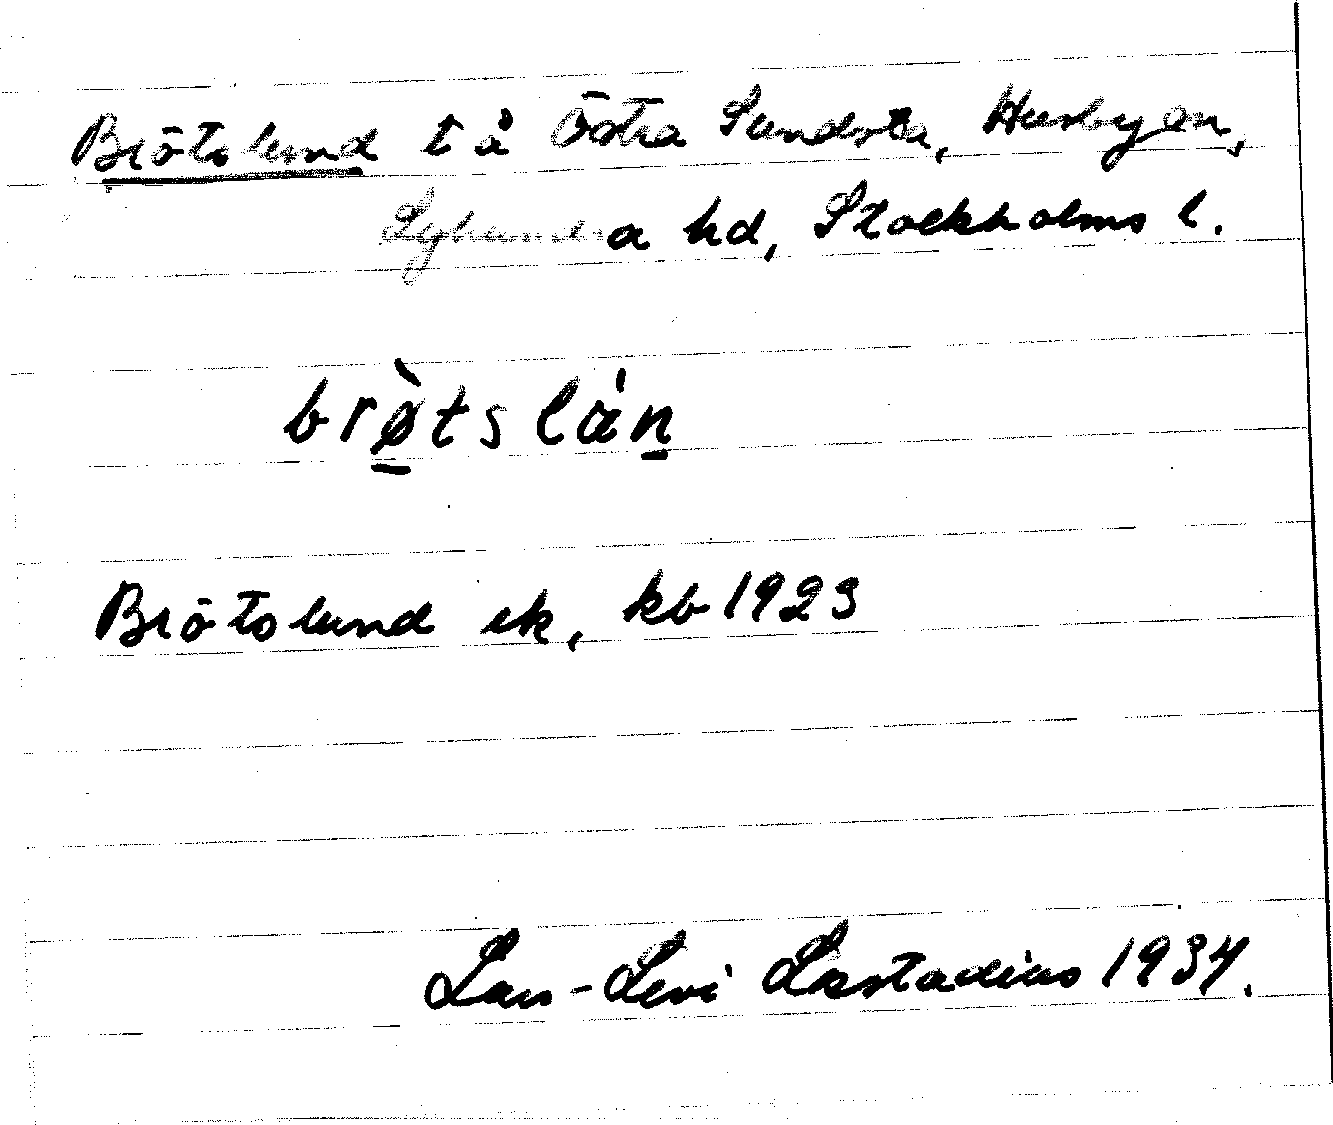 Brötslund t å Östra Sundsta, Husbyön,
Lyhundra hd, Stockholms l.
brø̀tslȧn
Brötslund ek, kb 1923
Lars-Levi Læstadius 1934.